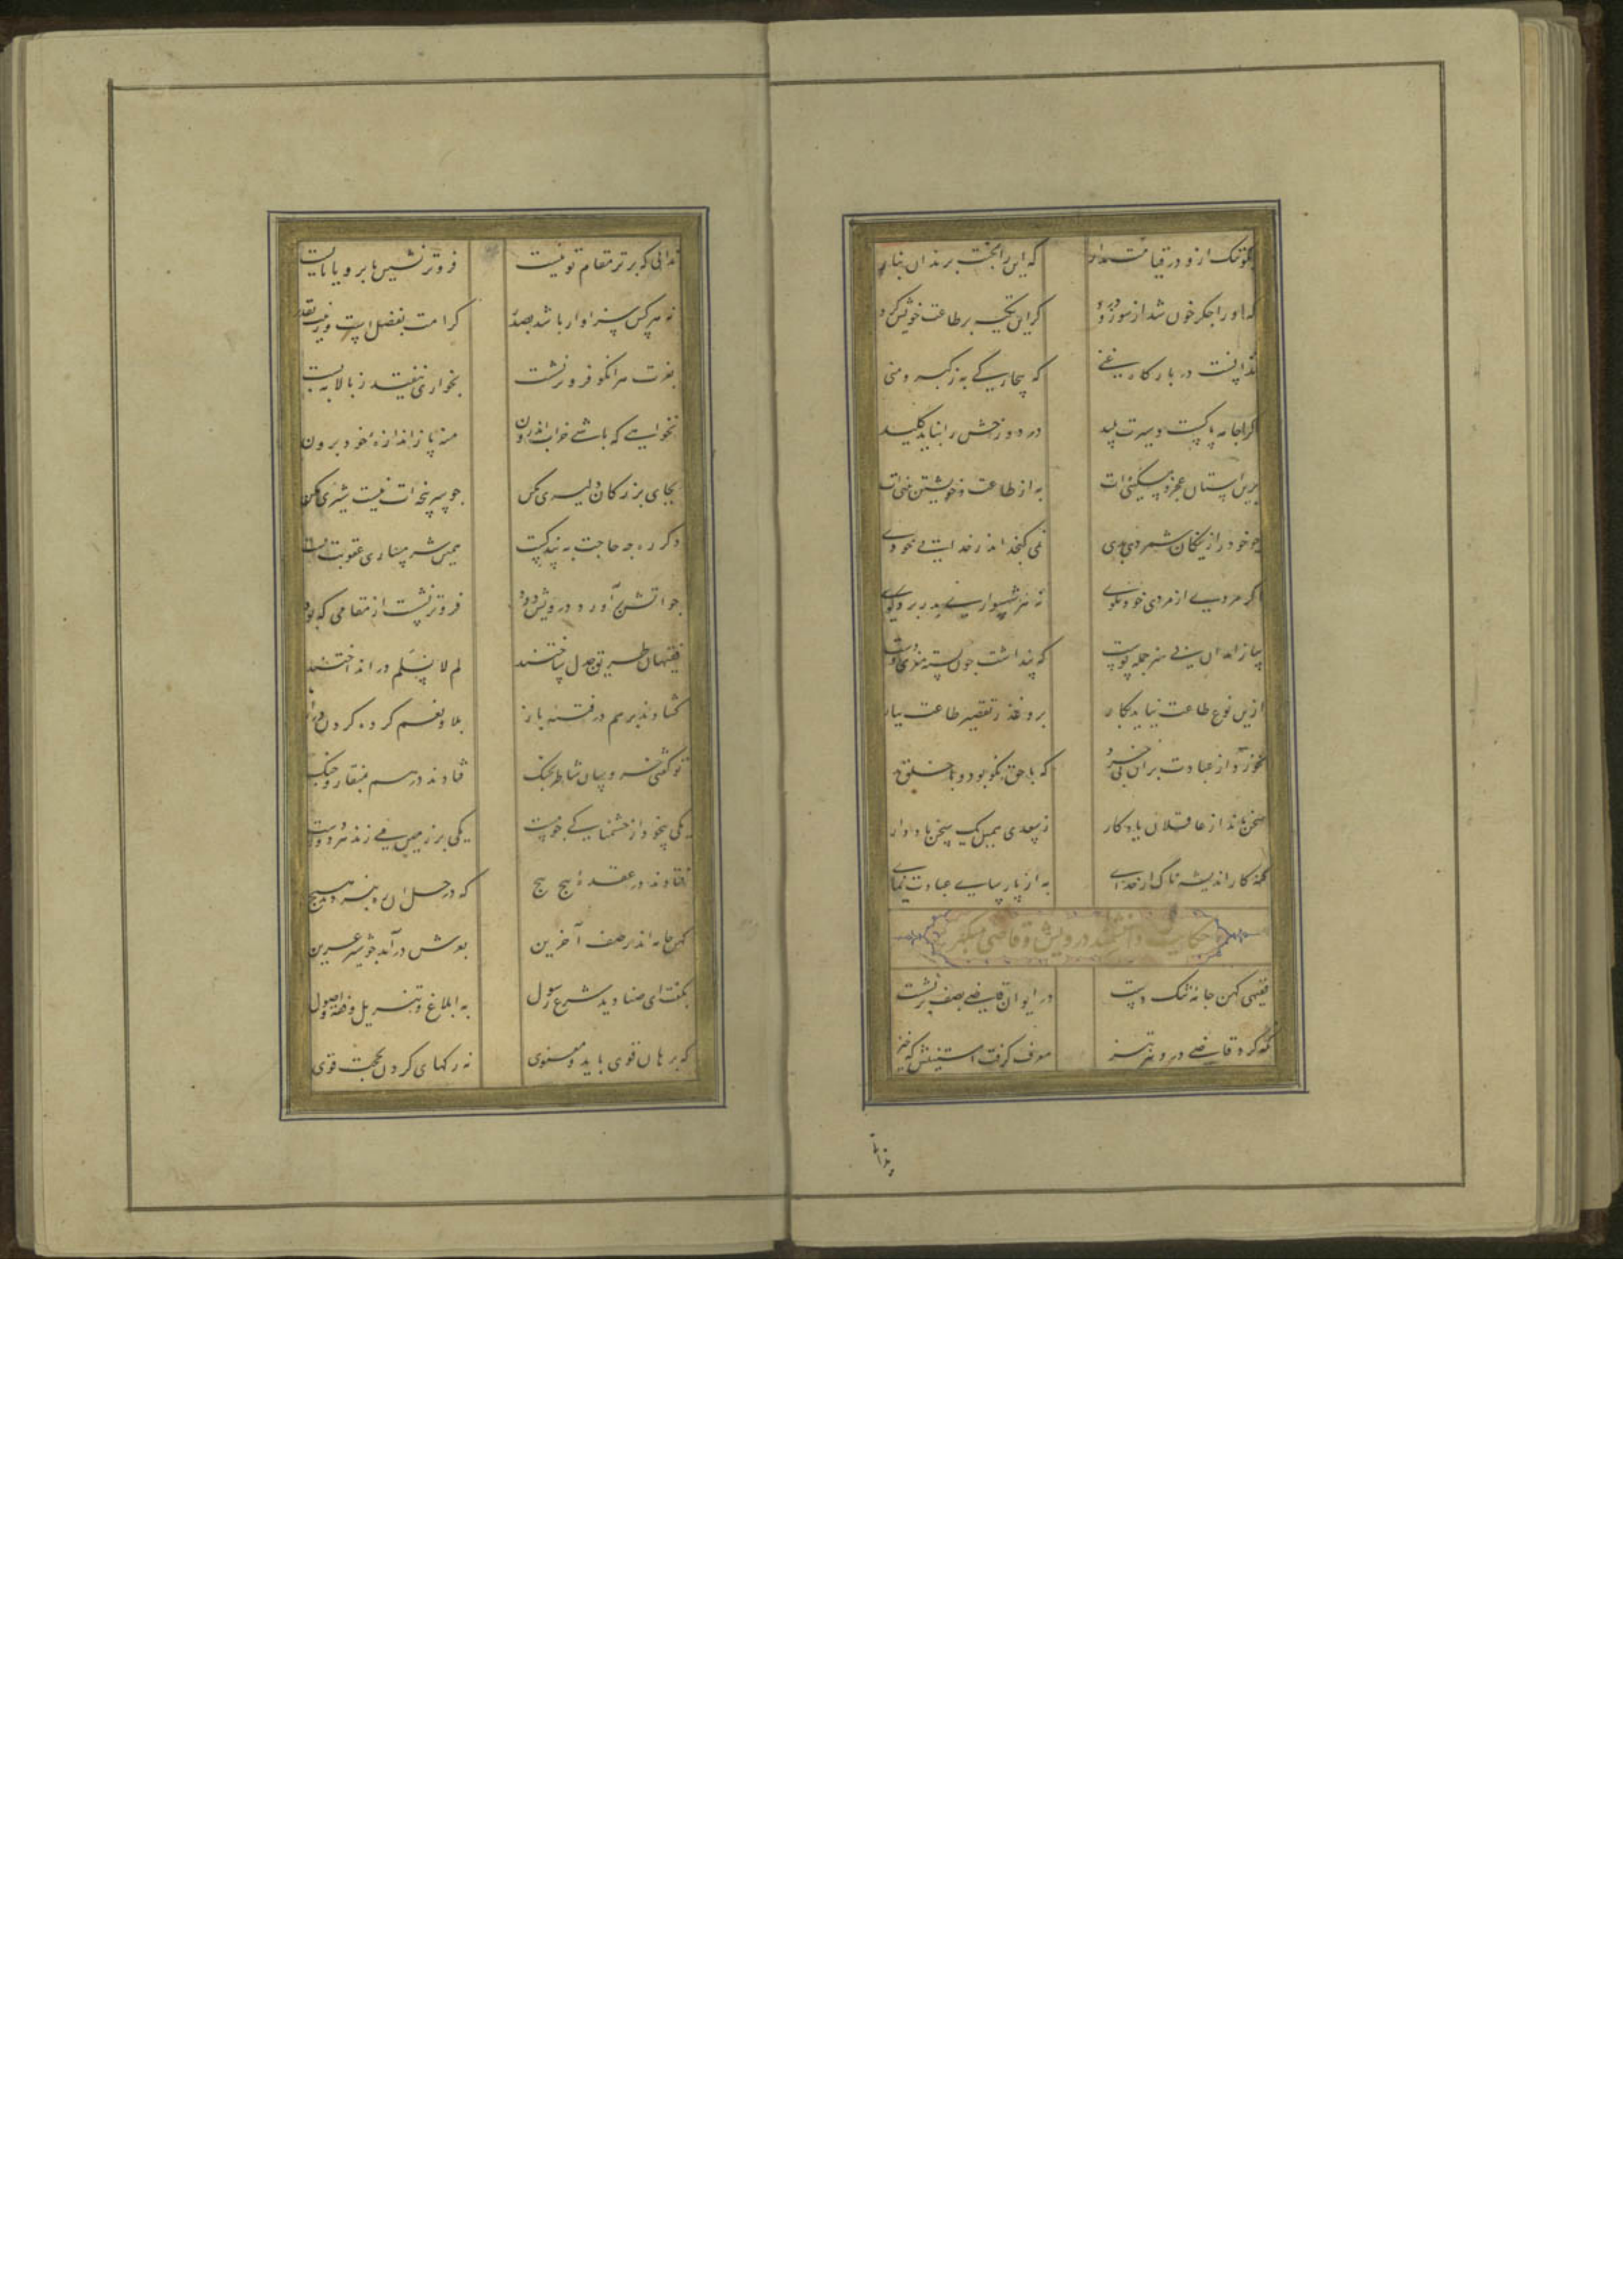 بگو ننگ ازو در قیامت مدار که این را بجنت برند آن بنار
که او را جگر خون شد از سوز و درد گر این تکیه بر طاعت خویش کرد
ندانست در بارگاه غنی که بیچارگی به ز کبر و منی
کرا جامه پاکست و سیرت پلید در دوزخش را نباید کلید
برین آستان عجز و مسکینی‌ات به از طاعت و خویشتن بینی‌ات
چو خود را ز نیکان شمردی بدی نمی‌گنجد اندر خدایی خودی
اگر مردی از مردی خود مگوی نه هر شهسواری بدر برد گوی
پیاز آمد آن بی هنر جمله پوست که پنداشت چون پسته مغزی دروست
ازین نوع طاعت نیاید بکار برو عذر تقصیر طاعت بیار
نخورد از عبادت بر آن بی خرد که با حق نکو بود و با خلق بد
سخن ماند از عاقلان یادگار ز سعدی همین یک سخن یاد دار
گنه کار اندیشه ناک از خدای به از پارسای عبادت نمای
حکایت دانشمند درویش و قاضی متکبر
فقیهی کهن جامهٔ تنگ دست در ایوان قاضی بصف برنشست
نگه کرد قاضی درو تیز تیز معرف گرفت آستینش که خیز
ندانی
ندانی که برتر مقام تو نیست فروتر نشین یا برو یا بایست
نه هر کس سزاوار باشد بصدر کرامت بفضل است و رتبت بقدر
بعزت هر آنکو فروتر نشست بخواری نیفتد ز بالا به پست
نخواهی که باشی خراب اندرون منه پا ز اندازهٔ خود برون
بجای بزرگان دلیری مکن چو سرپنجه‌ات نیست شیری مکن
دگر ره چه حاجت به پند کست همین شرمساری عقوبت بست
چو آتش برآورد درویش دود فروتر نشست از مقامی که بود
فقیهان طریق جدل ساختند لم لا نسلم در انداختند
گشادند بر هم در فتنه باز بلا و نعم کرده گردن دراز
تو گفتی خروسان شاطر بجنگ فتادند در هم بمنقار و چنگ
یکی بیخود از خشمناکی چو مست یکی بر زمین می زند هر دو دست
فتادند در عقدهٔ پیچ پیچ که در حل آن ره نبردند هیچ
کهن جامه اندر صف آخرین بغرش درآمد چو شیر عرین
بگفت ای صنادید شرع رسول به ابلاغ و تنزیل و فقه و اصول
که برهان قوی باید و معنوی نه رگهای گردن بحجت قوی